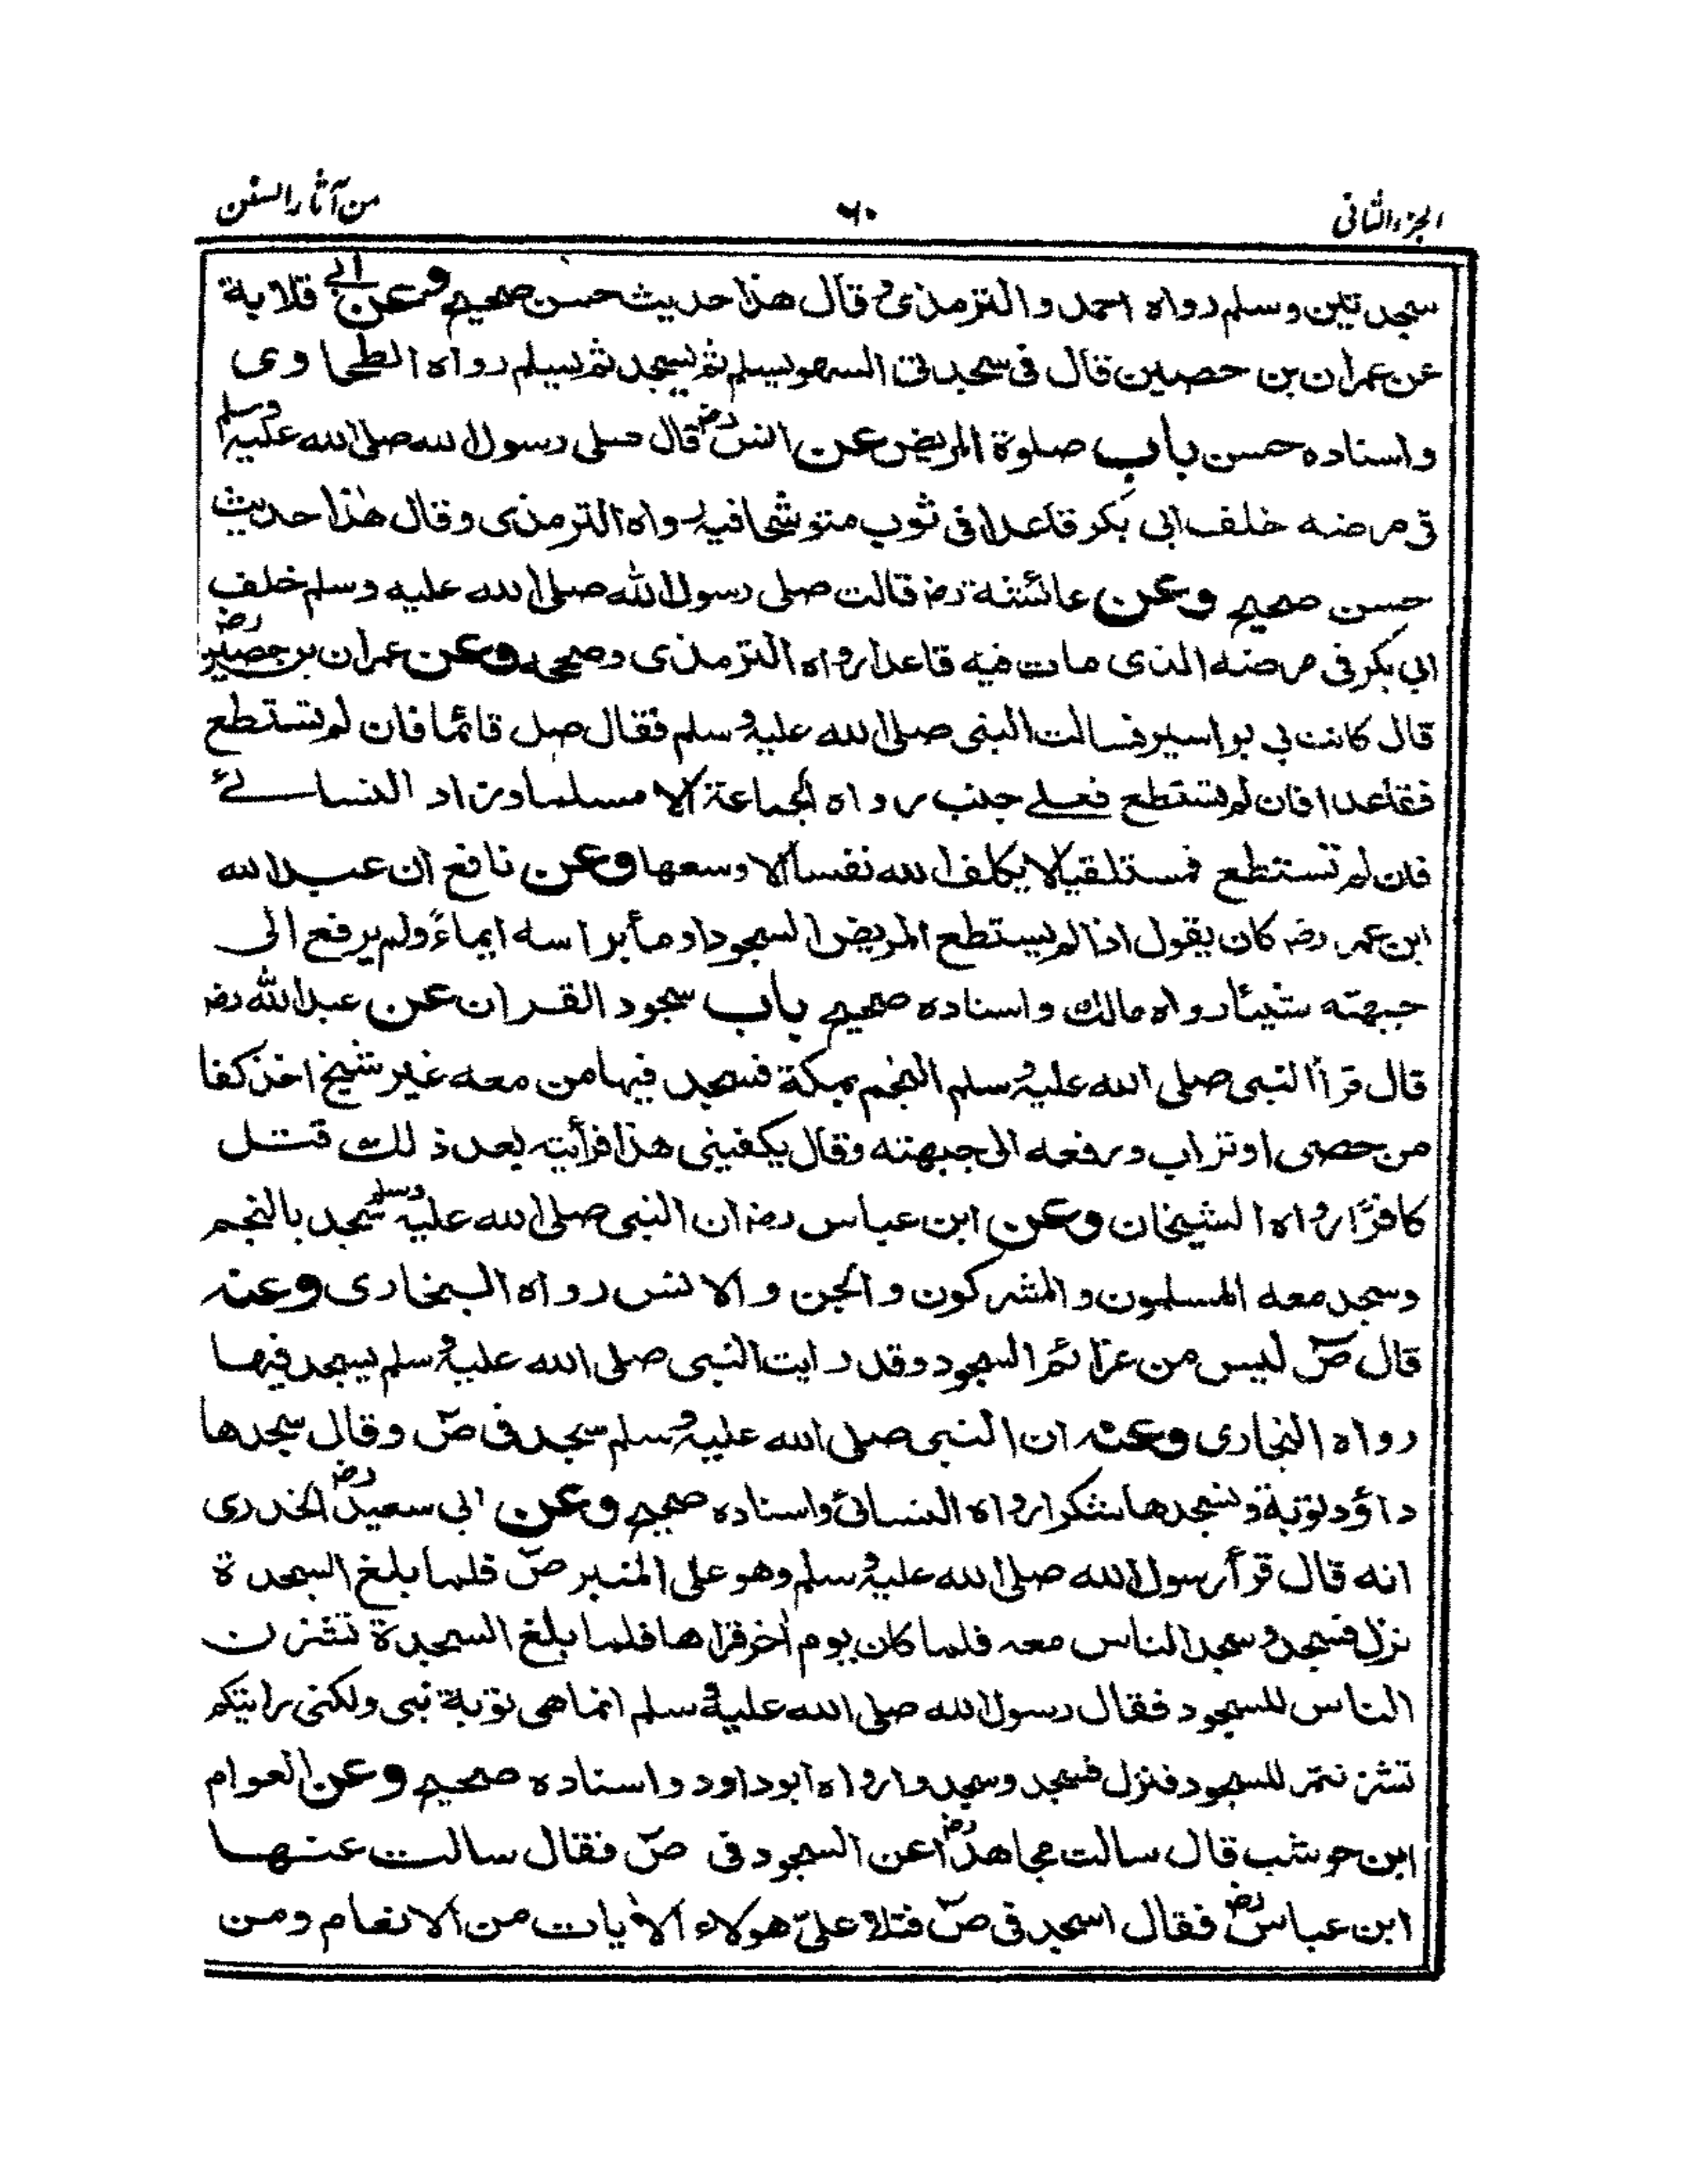 الجزء الثانی
٦٠
من آثار السنن
سجدتین وسلم رواه احمد والترمذی وقال هذا حدیث حسن صحیح وعن ابی قلابة
عن عمران بن حصین قال فی سجدتی السهو یسلم ثم یسجد ثم یسلم رواه الطحاوی
واسناده حسن باب صلوة المریض عن انس رضـ قال صلی رسول الله صلی الله علیه وسلم
فی مرضه خلف ابی بکر قاعدا فی ثوب متوشحا فیه رواه الترمذی وقال هٰذا حدیث
حسن صحیح وعن عائشة رضـ قالت صلی رسول الله صلی الله علیه وسلم خلف
ابی بکر فی مرضه الذی مات فیه قاعدا رواه الترمذی وصححه وعن عمران بن حصین رضـ
قال کانت بی بواسیر فسالت النبی صلی الله علیه وسلم فقال صل قائما فان لم تستطع
فقاعدا فان لم تستطع فعلے جنب رواه الجماعة الا مسلما وزاد النسائے
فان لم تستطع فمستلقیا لا یکلف الله نفسا الا وسعها وعن نافع ان عبد الله
ابن عمر رضـ کان یقول اذا لم یستطع المریض السجود اومأ براسه ایماءً ولم یرفع الی
جبهته شیئا رواه مالك واسناده صحیح باب سجود القران عن عبد الله رضـ
قال قرأ النبی صلی الله علیه وسلم النجم بمکة فسجد فیها من معه غیر شیخ اخذ کفا
من حصی او تراب ورفعه الی جبهته وقال یکفینی هذا فرأیته بعد ذلك قتل
کافرًا رواه الشیخان وعن ابن عباس رضـ ان النبی صلی الله علیه وسلم سجد بالنجم
وسجد معه المسلمون والمشرکون والجن والانس رواه البخاری وعنه
قال صٓ لیس من عزائم السجود وقد رایت النبی صلی الله علیه وسلم یسجد فیها
رواه البخاری وعنه ان النبی صلی الله علیه وسلم سجد فی صٓ وقال سجدها
داؤد توبة ونسجدها شکرا رواه النسائی واسناده صحیح وعن ابی سعید رضـ الخدری
انه قال قرأ رسول الله صلی الله علیه وسلم وهو علی المنبر صٓ فلما بلغ السجدة
نزل فسجد وسجد الناس معه فلما کان یوم اٰخر قراها فلما بلغ السجدة تشزن
الناس للسجود فقال رسول الله صلی الله علیه وسلم انما هی توبة نبی ولکنی رایتکم
تشزنتم للسجود فنزل فسجد وسجدوا رواه ابو داود واسناده صحیح وعن العوام
ابن حوشب قال سالت مجاهدا رضـ عن السجود فی صٓ فقال سالت عنها
ابن عباس رضـ فقال اسجد فی صٓ فتلا علیّ هولاء الاٰیات من الانعام ومن